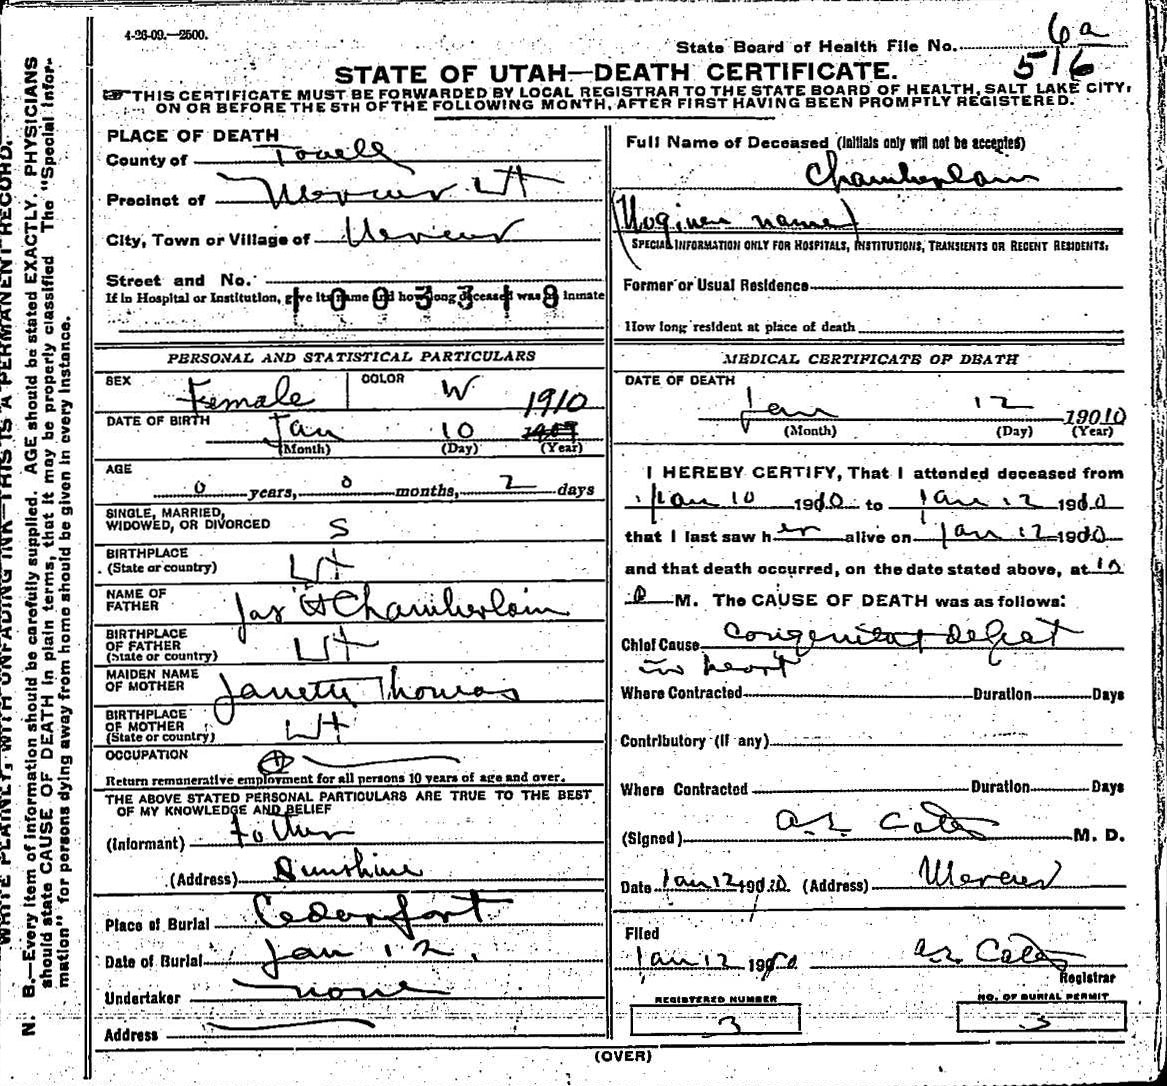 4-26-09.—2500.
6a
State Board of Health File No. 516
STATE OF UTAH—DEATH CERTIFICATE.
☞ THIS CERTIFICATE MUST BE FORWARDED BY LOCAL REGISTRAR TO THE STATE BOARD OF HEALTH, SALT LAKE CITY,
ON OR BEFORE THE 5TH OF THE FOLLOWING MONTH, AFTER FIRST HAVING BEEN PROMPTLY REGISTERED.
WRITE PLAINLY, WITH UNFADING INK—THIS IS A PERMANENT RECORD.
N. B.—Every item of information should be carefully supplied. AGE should be stated EXACTLY. PHYSICIANS
should state CAUSE OF DEATH in plain terms, that it may be properly classified. The "Special Infor-
mation" for persons dying away from home should be given in every instance.
PLACE OF DEATH
County of Tooele
Precinct of Mercur Ut
City, Town or Village of Mercur
Street and No.
If in Hospital or Institution, give its name and how long deceased was an inmate
1003318
PERSONAL AND STATISTICAL PARTICULARS
SEX Female COLOR W
1910
DATE OF BIRTH Jan 10 1909
(Month) (Day) (Year)
AGE
0 years, 0 months, 2 days
SINGLE, MARRIED,
WIDOWED, OR DIVORCED S
BIRTHPLACE
(State or country) Ut
NAME OF
FATHER Jas H Chamberlain
BIRTHPLACE
OF FATHER
(State or country) Ut
MAIDEN NAME
OF MOTHER Janette Thomas
BIRTHPLACE
OF MOTHER
(State or country) Ut
OCCUPATION
Return remunerative employment for all persons 10 years of age and over.
THE ABOVE STATED PERSONAL PARTICULARS ARE TRUE TO THE BEST
OF MY KNOWLEDGE AND BELIEF
(Informant) Father
(Address) Sunshine
Place of Burial Cedarfort
Date of Burial Jan 12.
Undertaker none
Address
Full Name of Deceased (Initials only will not be accepted)
Chamberlain
(No given name)
SPECIAL INFORMATION ONLY FOR HOSPITALS, INSTITUTIONS, TRANSIENTS OR RECENT RESIDENTS.
Former or Usual Residence
How long resident at place of death
MEDICAL CERTIFICATE OF DEATH
DATE OF DEATH
Jan 12 19010
(Month) (Day) (Year)
I HEREBY CERTIFY, That I attended deceased from
Jan 10 1910 to Jan 12 1910
that I last saw her alive on Jan 12 1910
and that death occurred, on the date stated above, at 10
M. The CAUSE OF DEATH was as follows:
Chief Cause Congenital Defect
in heart
Where Contracted Duration Days
Contributory (if any)
Where Contracted Duration Days
(Signed) M. D.
Date Jan 12 1910 (Address) Mercur
Filed
Jan 12 1910
Registrar
REGISTERED NUMBER
3
NO. OF BURIAL PERMIT
3
(OVER)